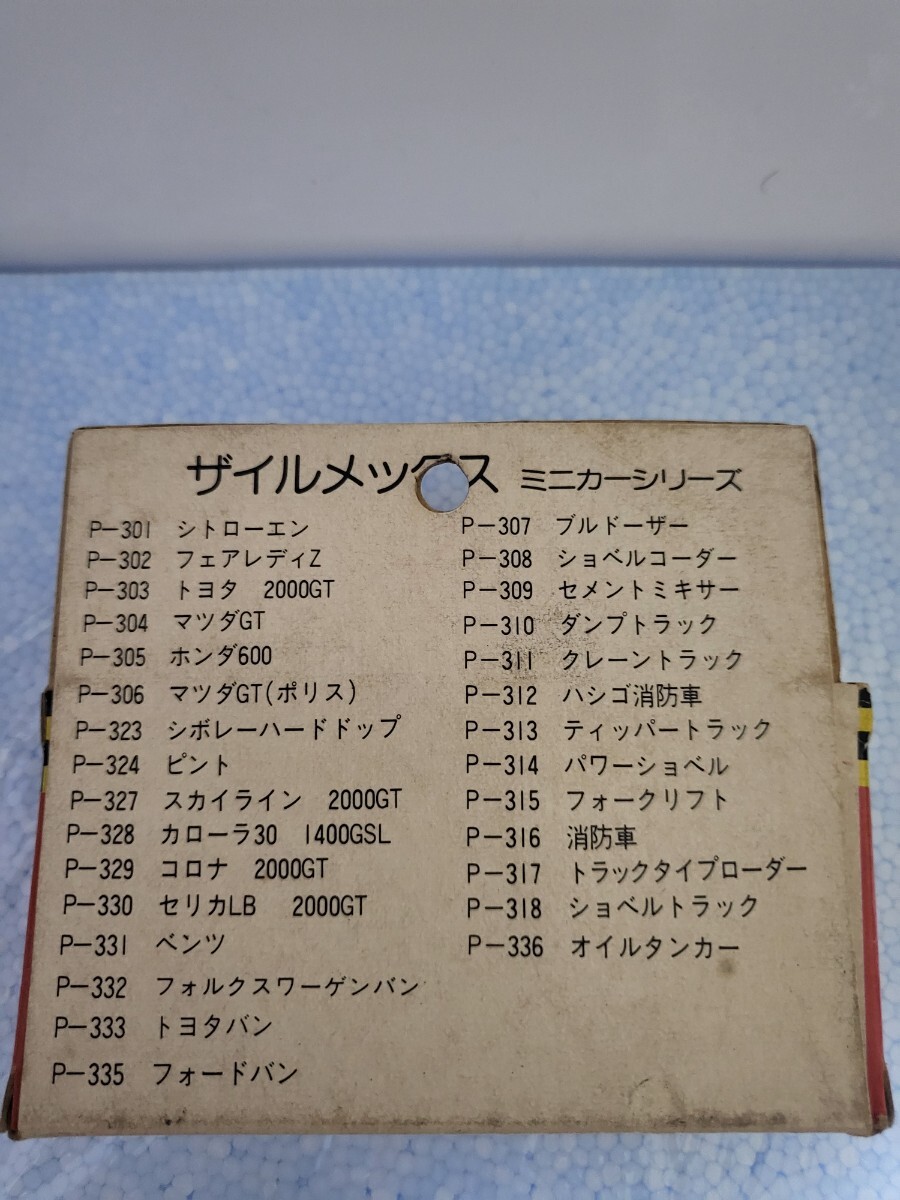 ザイルメックス ミニカーシリーズ
P-301 シトローエン
P-302 フェアレディZ
P-303 トヨタ 2000GT
P-304 マツダGT
P-305 ホンダ600
P-306 マツダGT(ポリス)
P-323 シボレーハードドップ
P-324 ピント
P-327 スカイライン 2000GT
P-328 カローラ30 1400GSL
P-329 コロナ 2000GT
P-330 セリカLB 2000GT
P-331 ベンツ
P-332 フォルクスワーゲンバン
P-333 トヨタバン
P-335 フォードバン
P-307 ブルドーザー
P-308 ショベルコーダー
P-309 セメントミキサー
P-310 ダンプトラック
P-311 クレーントラック
P-312 ハシゴ消防車
P-313 ティッパートラック
P-314 パワーショベル
P-315 フォークリフト
P-316 消防車
P-317 トラックタイプローダー
P-318 ショベルトラック
P-336 オイルタンカー